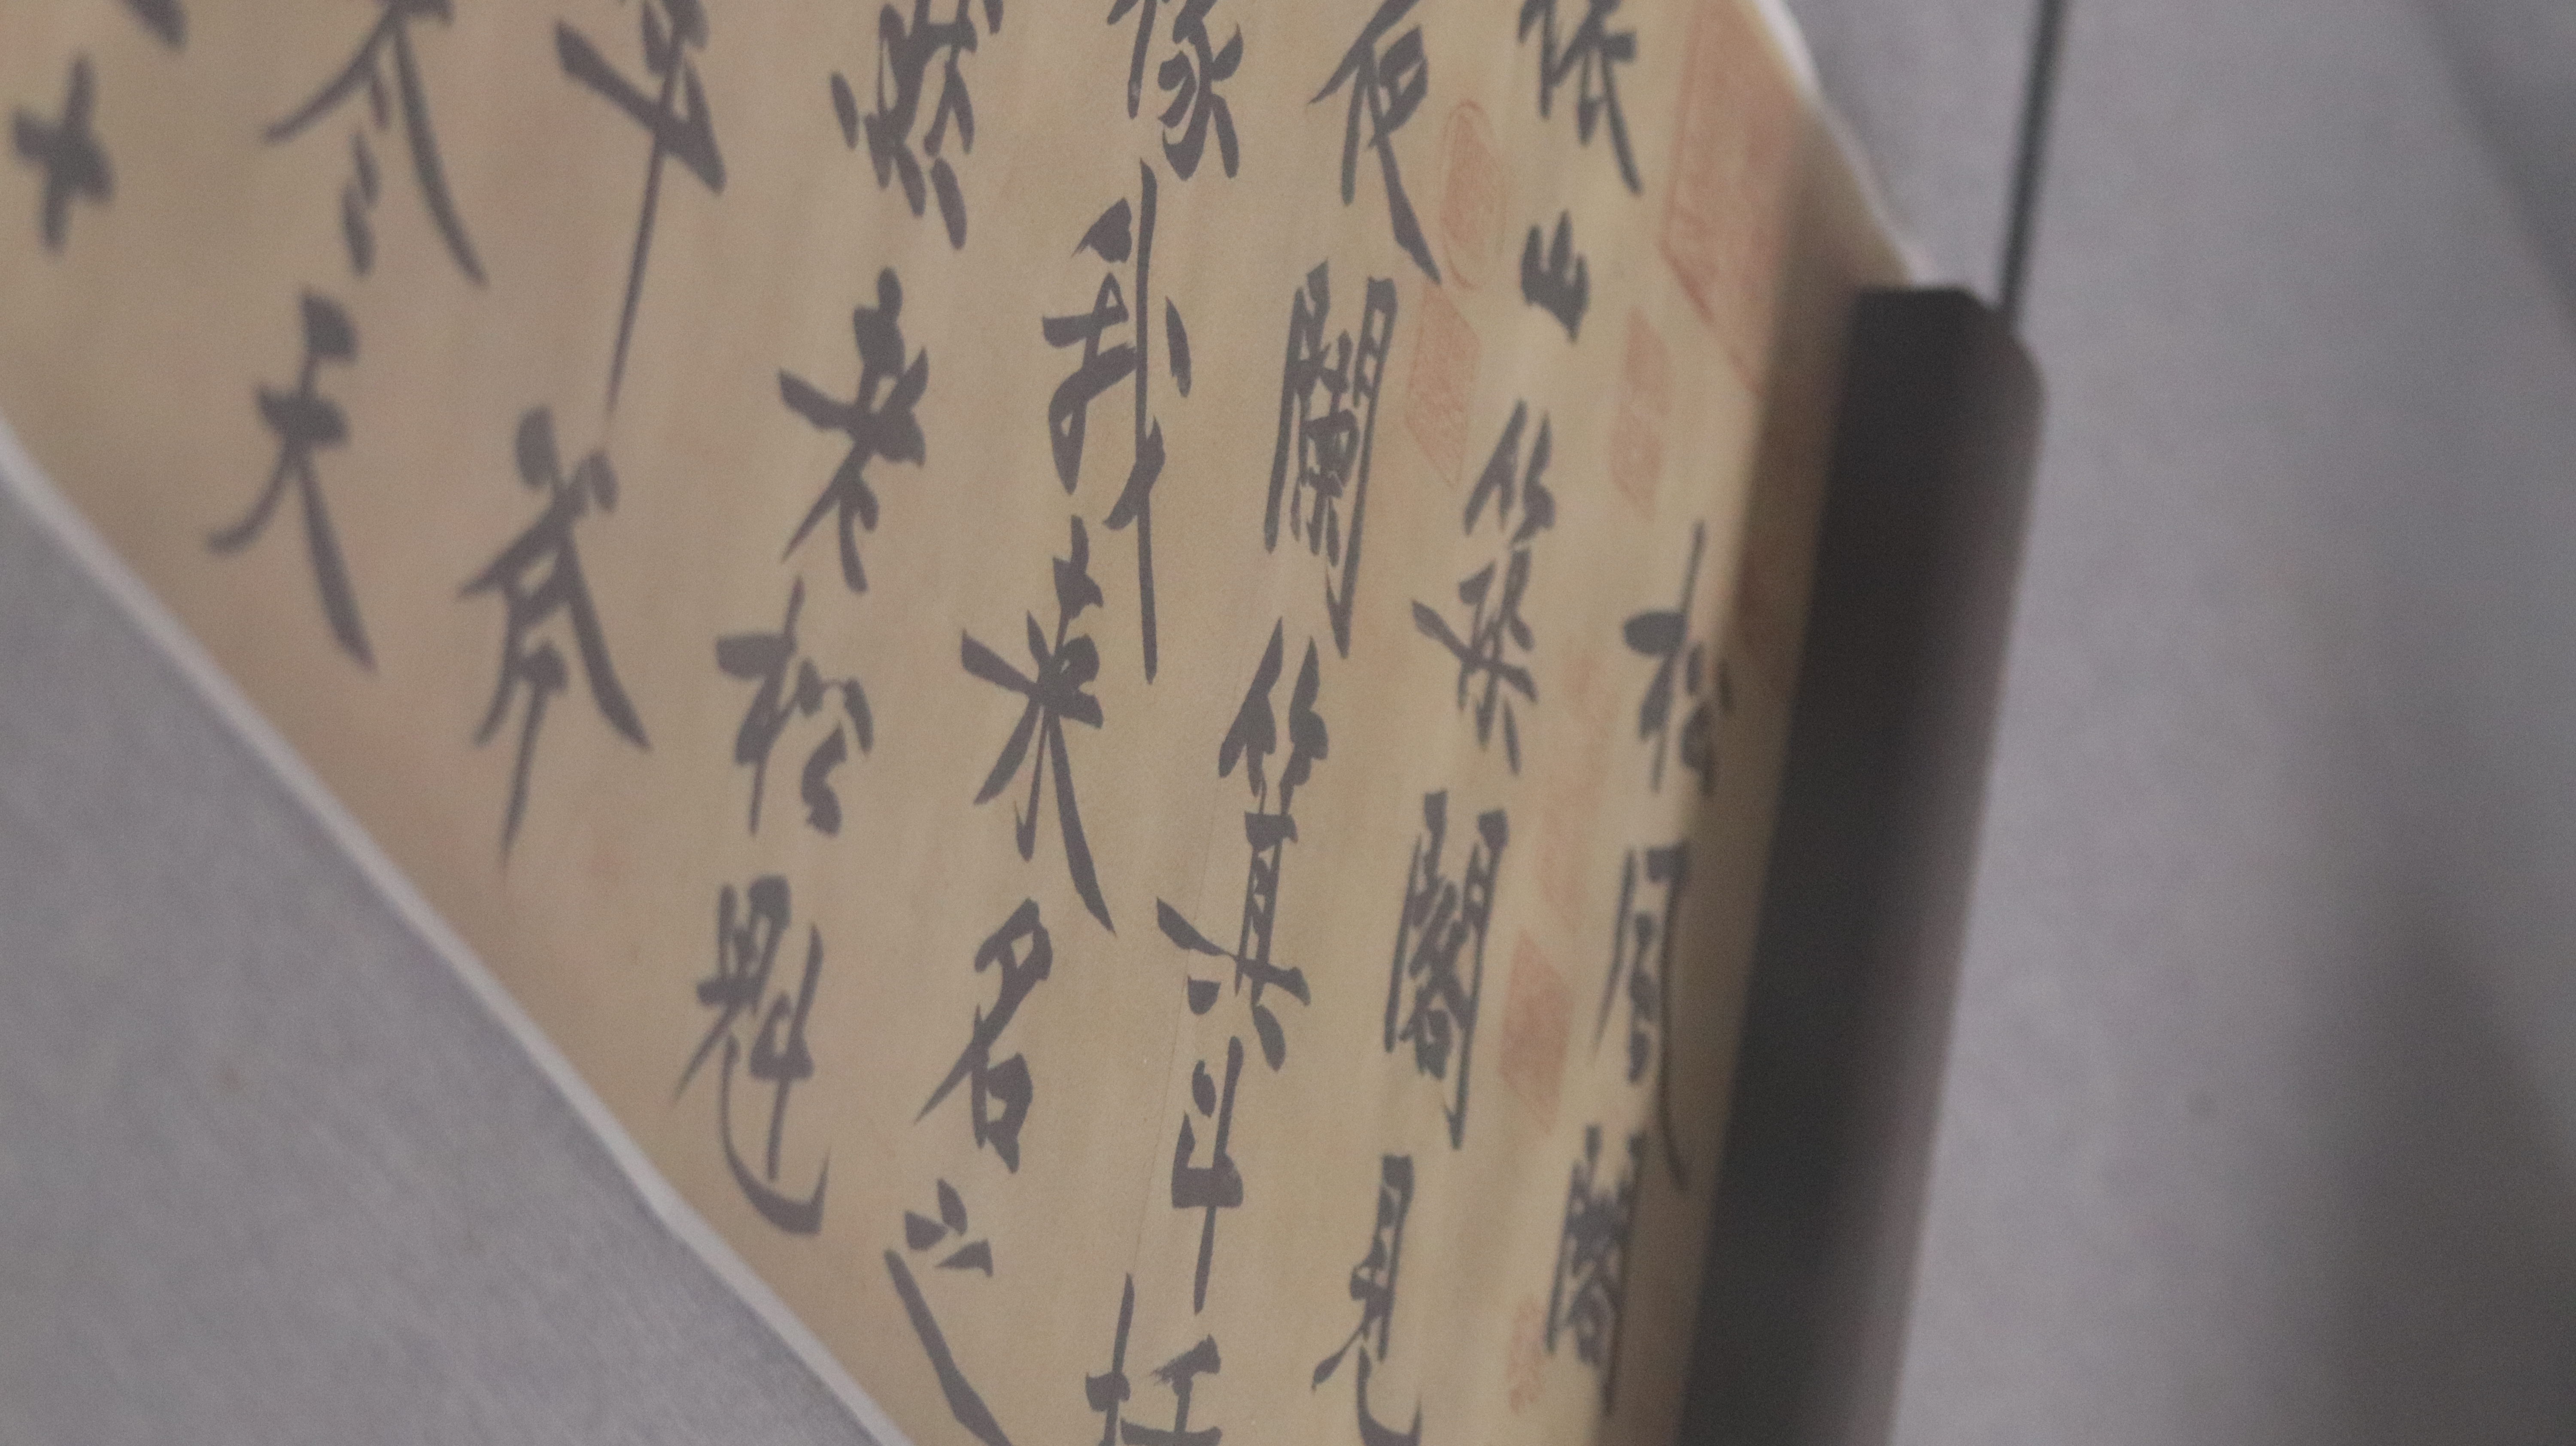 松風閣
依山築閣見
夜闌箕斗插
椽我來名之
然老松魁
年斧
參天
十